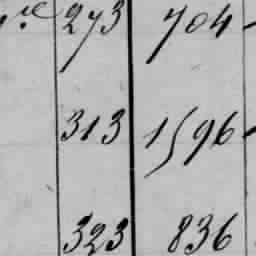 re 273 704
313 1596
323 836